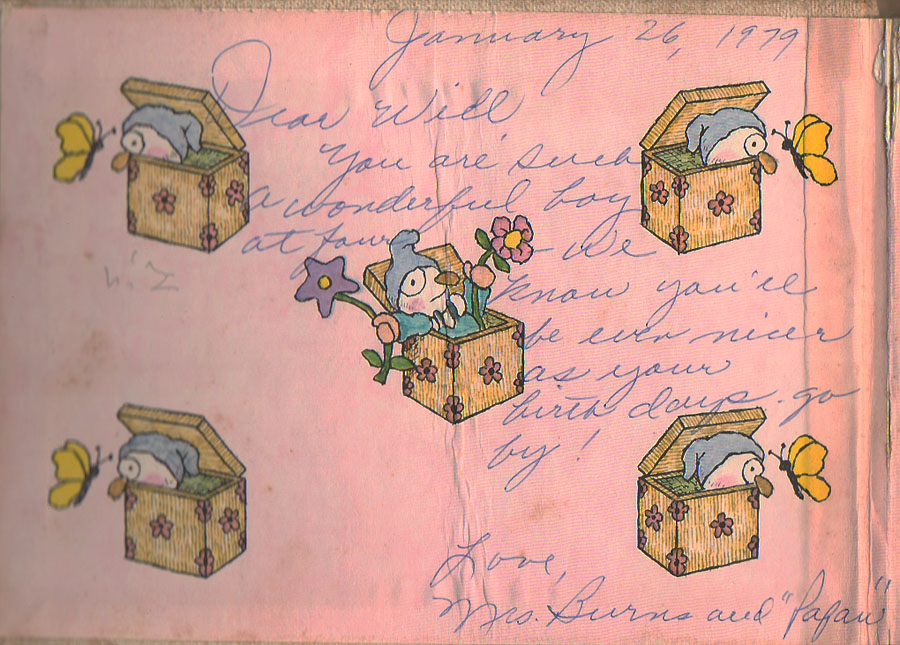 January 26, 1979
Dear Will,
You are such
a wonderful boy
at four - We
know you'll
be even nicer
as your
birth days go
by!
Love,
Mrs. Burns and "Papaw"